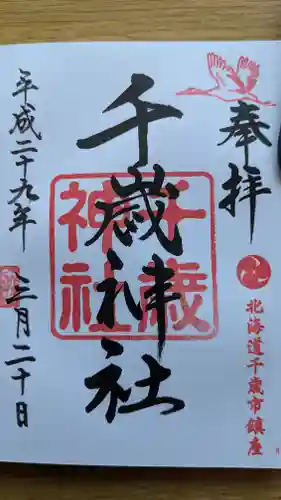 奉拝
北海道千歳市鎮座
千歳神社
千歳
神社
平成二十九年
三月二十日